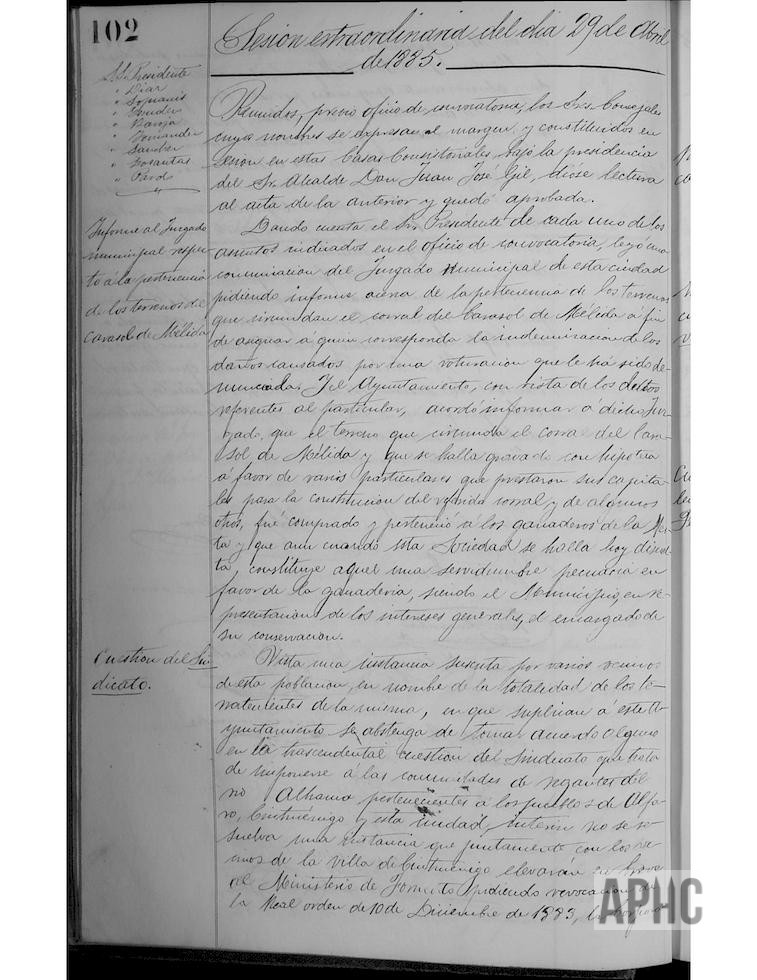 102
Sesion extraordinaria del dia 29 de Abril
de 1885.
S.S. Presidente
" Diaz
"
"
" Naroja
" Fernandez
" Sanchez
"
" Pardo
Reunidos, previo oficio de convocatoria, los Sres. Concejales
cuyos nombres se expresan al margen, y constituidos en
sesion en estas Casas Consistoriales, bajo la presidencia
del Sr. Alcalde Don Juan José Gil, dióse lectura
al acta de la anterior y quedó aprobada.
Informe al Juzgado
municipal respec-
to á la pertenencia
de los terrenos del
Carasol de Mélida
Dando cuenta el Sr. Presidente de cada uno de los
asuntos indicados en el oficio de convocatoria, leyó una
comunicacion del Juzgado municipal de esta ciudad
pidiendo informe acerca de la pertenencia de los terrenos
que circundan el corral del Carasol de Mélida á fin
de asignar a quien corresponda la indemnizacion de los
daños causados por una roturacion que le ha sido de-
nunciada. Y el Ayuntamiento, con vista de los datos
referentes al particular, acordó informar á dicho Juz-
gado, que el terreno que circunda el corral del Cara-
sol de Mélida y que se halla gravado con hipoteca
á favor de varios particulares que prestaron sus capita-
les para la constitucion del referido corral y de algunos
otros, fué comprado y perteneció á los ganaderos de la Mes-
ta y que aun cuando esta Sociedad se halla hoy disuel-
ta, constituye aquel una servidumbre pecuaria en
favor de la ganadería, siendo el Municipio, en re-
presentacion de los intereses generales, el encargado de
su conservacion.
Cuestion del Sin-
dicato.
Vista una instancia suscrita por varios vecinos
de esta poblacion, en nombre de la totalidad de los te-
rratenientes de la misma, en que suplican á este A-
yuntamiento se abstenga de tomar acuerdo alguno
en la trascendental cuestion del Sindicato que trata
de imponerse á las comunidades de regantes del
rio Alhama pertenecientes á los pueblos de Alfa-
ro, Cintruénigo y esta ciudad, interin no se re-
suelva una instancia que juntamente con los ve-
cinos de la villa de Cintruénigo elevarán en breve
al Ministerio de Fomento, pidiendo revocacion de
la Real orden de 10 de Diciembre de 1883,
APHC